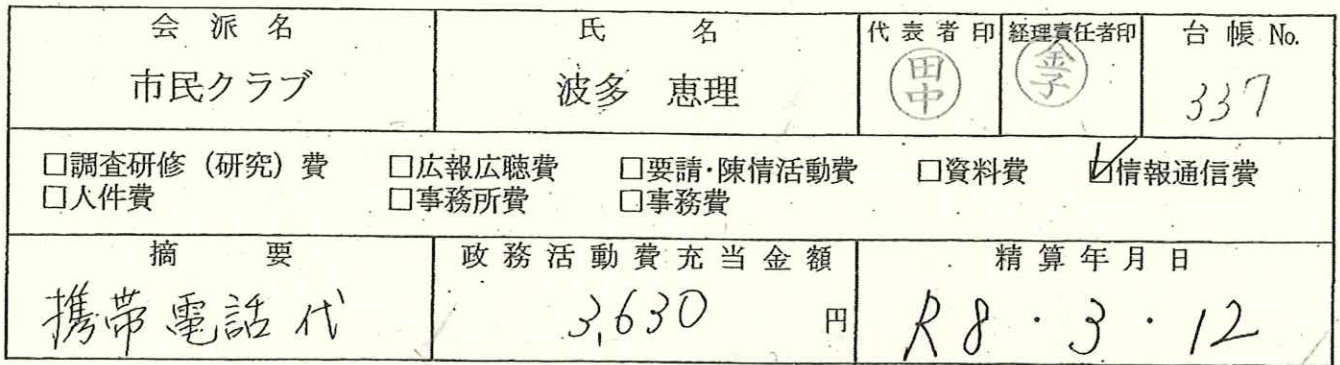 会派名 氏名 代表者印 経理責任者印 台帳No.
市民クラブ 波多 恵理 田中 金子 337
□調査研修（研究）費 □広報広聴費 □要請・陳情活動費 □資料費 ☑情報通信費
□人件費 □事務所費 □事務費
摘要 政務活動費充当金額 精算年月日
携帯電話代 3,630円 R8・3・12